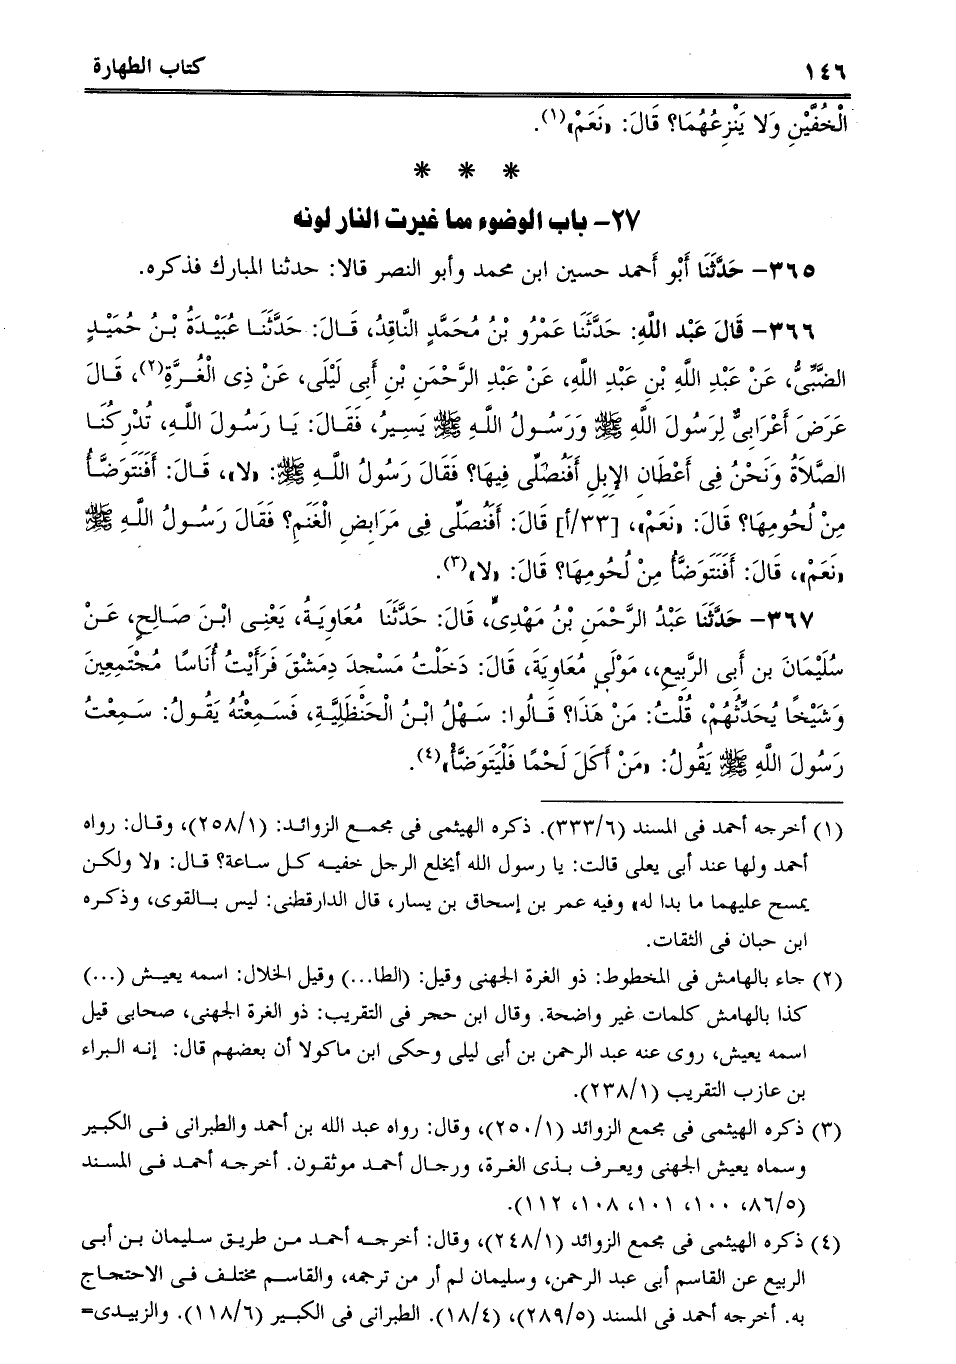 ١٤٦ كتاب الطهارة
الْخُفَّيْنِ وَلا يَنْزِعُهُمَا؟ قَالَ: «نَعَمْ»(١).
* * *
٢٧- باب الوضوء مما غيرت النار لونه
٣٦٥- حَدَّثَنَا أَبُو أَحمد حسين ابن محمد وأبو النصر قالا: حدثنا المبارك فذكره.
٣٦٦- قَالَ عَبْد اللهِ: حَدَّثَنَا عَمْرُو بْنُ مُحَمَّدٍ النَّاقِدُ، قَـالَ: حَدَّثَنَـا عُبَيْـدَةُ بْـنُ حُمَيْـدٍ
الضَّبِّىُّ، عَنْ عَبْدِ اللَّهِ بْنِ عَبْدِ اللَّهِ، عَنْ عَبْدِ الرَّحْمَنِ بْنِ أَبِى لَيْلَى، عَنْ ذِى الْغُـرَّةِ(٢)، قَـالَ
عَرَضَ أَعْرَابِىٌّ لِرَسُولَ اللَّهِ ﷺ وَرَسُـولُ اللَّـهِ ﷺ يَسِيرُ، فَقَـالَ: يَـا رَسُـولَ اللَّـهِ، تُدْرِكُنَـا
الصَّلاَةُ وَنَحْنُ فِى أَعْطَانِ الإِبِلِ أَفَنُصَلِّى فِيهَا؟ فَقَالَ رَسُولُ اللَّـهِ ﷺ: «لا»، قَـالَ: أَفَنَتَوَضَّـأُ
مِنْ لُحُومِهَا؟ قَالَ: «نَعَمْ»، [٣٣/أ] قَالَ: أَفَنُصَلِّى فِى مَرَابِضِ الْغَنَمِ؟ فَقَالَ رَسُـولُ اللَّـهِ ﷺ
«نَعَمْ»، قَالَ: أَفَنَتَوَضَّأُ مِنْ لُحُومِهَا؟ قَالَ: «لا»(٣).
٣٦٧- حَدَّثَنَا عَبْدُ الرَّحْمَنِ بْنُ مَهْدِىٍّ، قَالَ: حَدَّثَنَا مُعَاوِيَةُ، يَعْنِى ابْنَ صَـالِحٍ، عَـنْ
سُلَيْمَانَ بنِ أَبِى الرَّبِيعِ،، مَوْلَى مُعَاوِيَةَ، قَالَ: دَخَلْتُ مَسْجِدَ دِمَشْقَ فَرَأَيْتُ أُنَاسًا مُجْتَمِعِينَ
وَشَيْخًا يُحَدِّثُهُمْ، قُلْتُ: مَنْ هَذَا؟ قَـالُوا: سَـهْلُ ابْـنُ الْحَنْظَلِيَّـةِ، فَسَـمِعْتُهُ يَقُـولُ: سَـمِعْتُ
رَسُولَ اللَّهِ ﷺ يَقُولُ: «مَنْ أَكَلَ لَحْمًا فَلْيَتَوَضَّأْ»(٤).
(١) أخرجه أحمد فى المسند (٣٣٣/٦). ذكره الهيثمى فى مجمـع الزوائـد: (٢٥٨/١)، وقـال: رواه
أحمد ولها عند أبى يعلى قالت: يا رسول الله أيخلع الرجل خفيـه كـل سـاعة؟ قـال: «لا ولكـن
يمسح عليهما ما بدا له» وفيه عمر بن إسحاق بن يسار، قال الدارقطنى: ليس بـالقوى، وذكـره
ابن حبان فى الثقات.
(٢) جاء بالهامش فى المخطوط: ذو الغرة الجهنى وقيل: (الطا...) وقيل الخلال: اسمه يعيـش (...)
كذا بالهامش كلمات غير واضحة. وقال ابن حجر فى التقريب: ذو الغرة الجهنى، صحابى قيل
اسمه يعيش، روى عنه عبد الرحمن بن أبى ليلى وحكى ابن ماكولا أن بعضهم قال: إنـه الـبراء
بن عازب التقريب (٢٣٨/١).
(٣) ذكره الهيثمى فى مجمع الزوائد (٢٥٠/١)، وقال: رواه عبد الله بن أحمد والطبرانى فـى الكبـير
وسماه يعيش الجهنى ويعـرف بـذى الغرة، ورجـال أحمـد موثقـون. أخرجـه أحمـد فـى المسـند
(٨٦/٥، ١٠٠، ١٠١، ١٠٨، ١١٢).
(٤) ذكره الهيثمى فى مجمع الزوائد (٢٤٨/١)، وقال: أخرجـه أحمـد مـن طريـق سـليمان بـن أبـى
الربيع عن القاسم أبى عبد الرحمن، وسليمان لم أر من ترجمه، والقاسـم مختلـف فـى الاحتجـاج
به. أخرجه أحمد فى المسند (٢٨٩/٥)، (١٨/٤). الطبرانى فى الكبير (١١٨/٦). والزبيـدى=